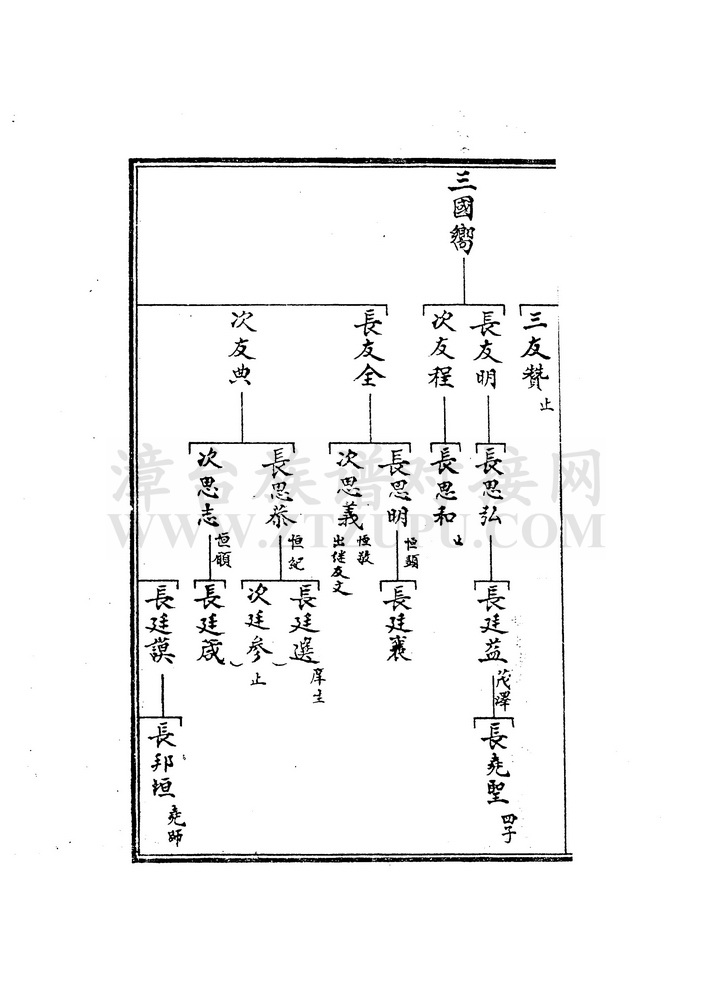 三國嚮
三友贊
止
長友明
次友程
長友全
次友典
長思弘
長思和
止
長思明
恒顯
次思義
恒敬
出繼友文
長思恭
恒紀
次思志
恒頤
長廷益
茂澤
長廷襄
長廷選
庠生
次廷參
止
長廷箴
長廷謨
長堯聖
四子
長邦垣
堯師
漳台族谱对接网
WWW.ZTZUPU.COM